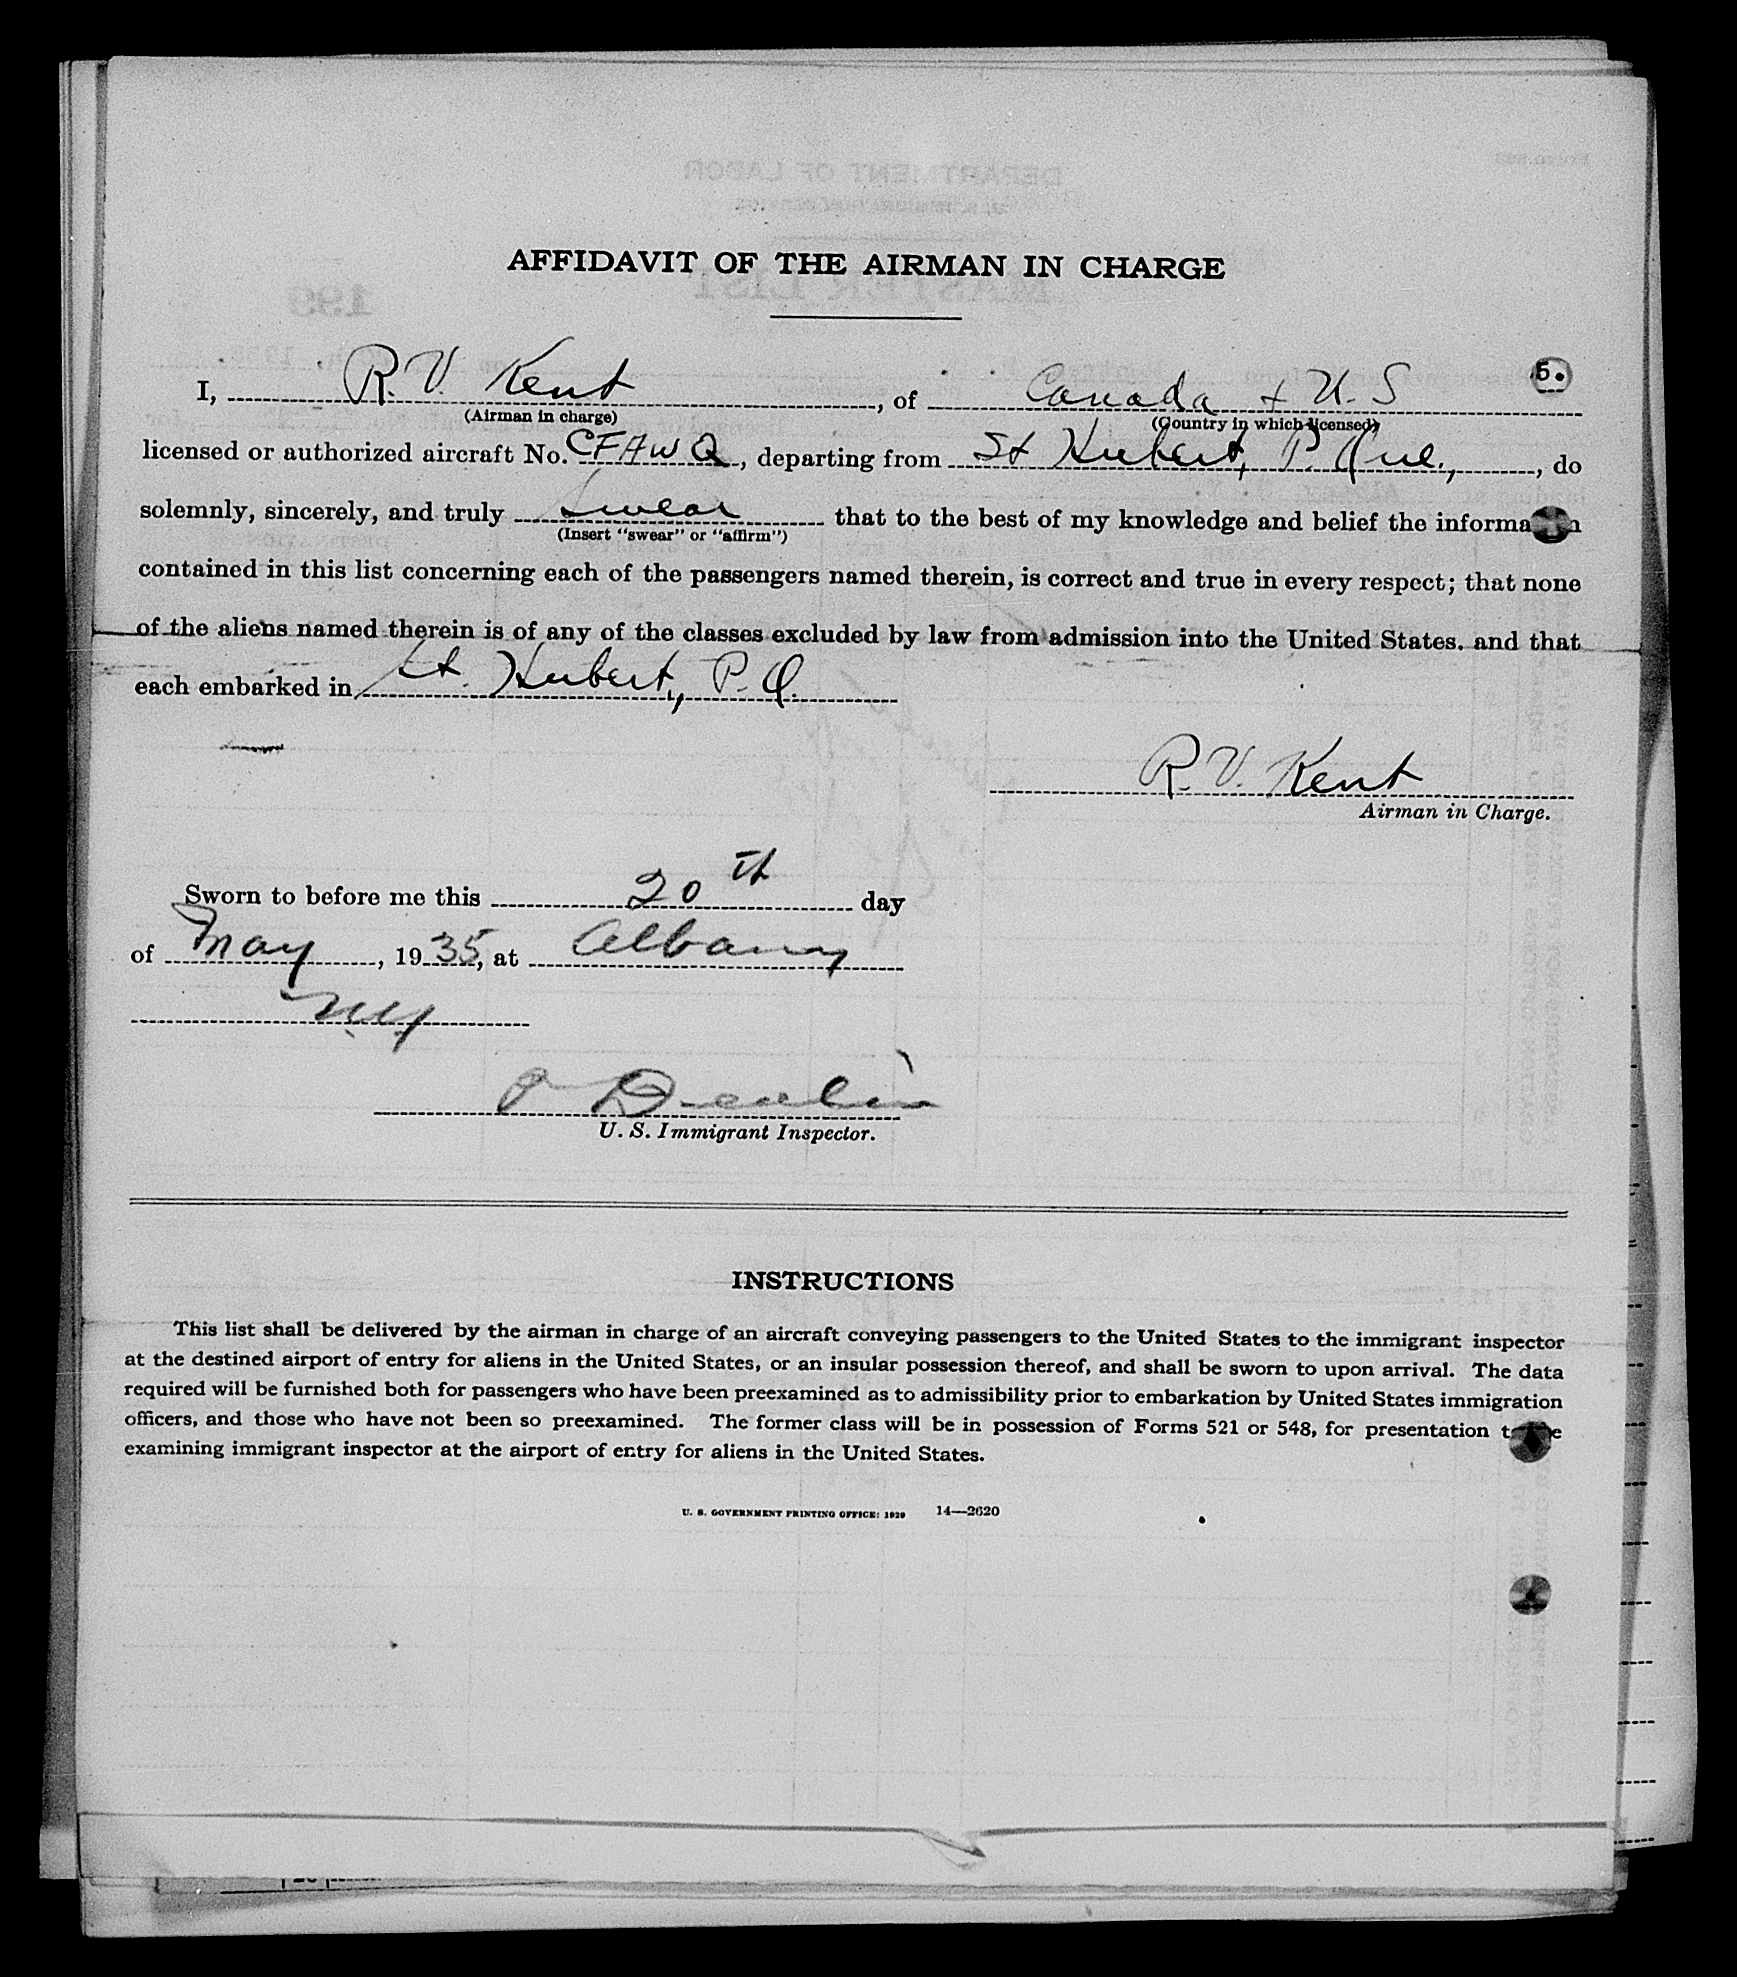 AFFIDAVIT OF THE AIRMAN IN CHARGE
5.
I, R. V. Kent, of Canada + U. S
(Airman in charge) (Country in which licensed)
licensed or authorized aircraft No. CFAWQ, departing from St Hubert, P. Que., do
solemnly, sincerely, and truly swear that to the best of my knowledge and belief the informa n
(Insert "swear" or "affirm")
contained in this list concerning each of the passengers named therein, is correct and true in every respect; that none
of the aliens named therein is of any of the classes excluded by law from admission into the United States. and that
each embarked in St. Hubert, P. Q.
R. V. Kent
Airman in Charge.
Sworn to before me this 20th day
of May, 1935, at Albany
N.Y.
U. S. Immigrant Inspector.
INSTRUCTIONS
This list shall be delivered by the airman in charge of an aircraft conveying passengers to the United States to the immigrant inspector
at the destined airport of entry for aliens in the United States, or an insular possession thereof, and shall be sworn to upon arrival. The data
required will be furnished both for passengers who have been preexamined as to admissibility prior to embarkation by United States immigration
officers, and those who have not been so preexamined. The former class will be in possession of Forms 521 or 548, for presentation t e
examining immigrant inspector at the airport of entry for aliens in the United States.
U. S. GOVERNMENT PRINTING OFFICE: 1929 14—2620